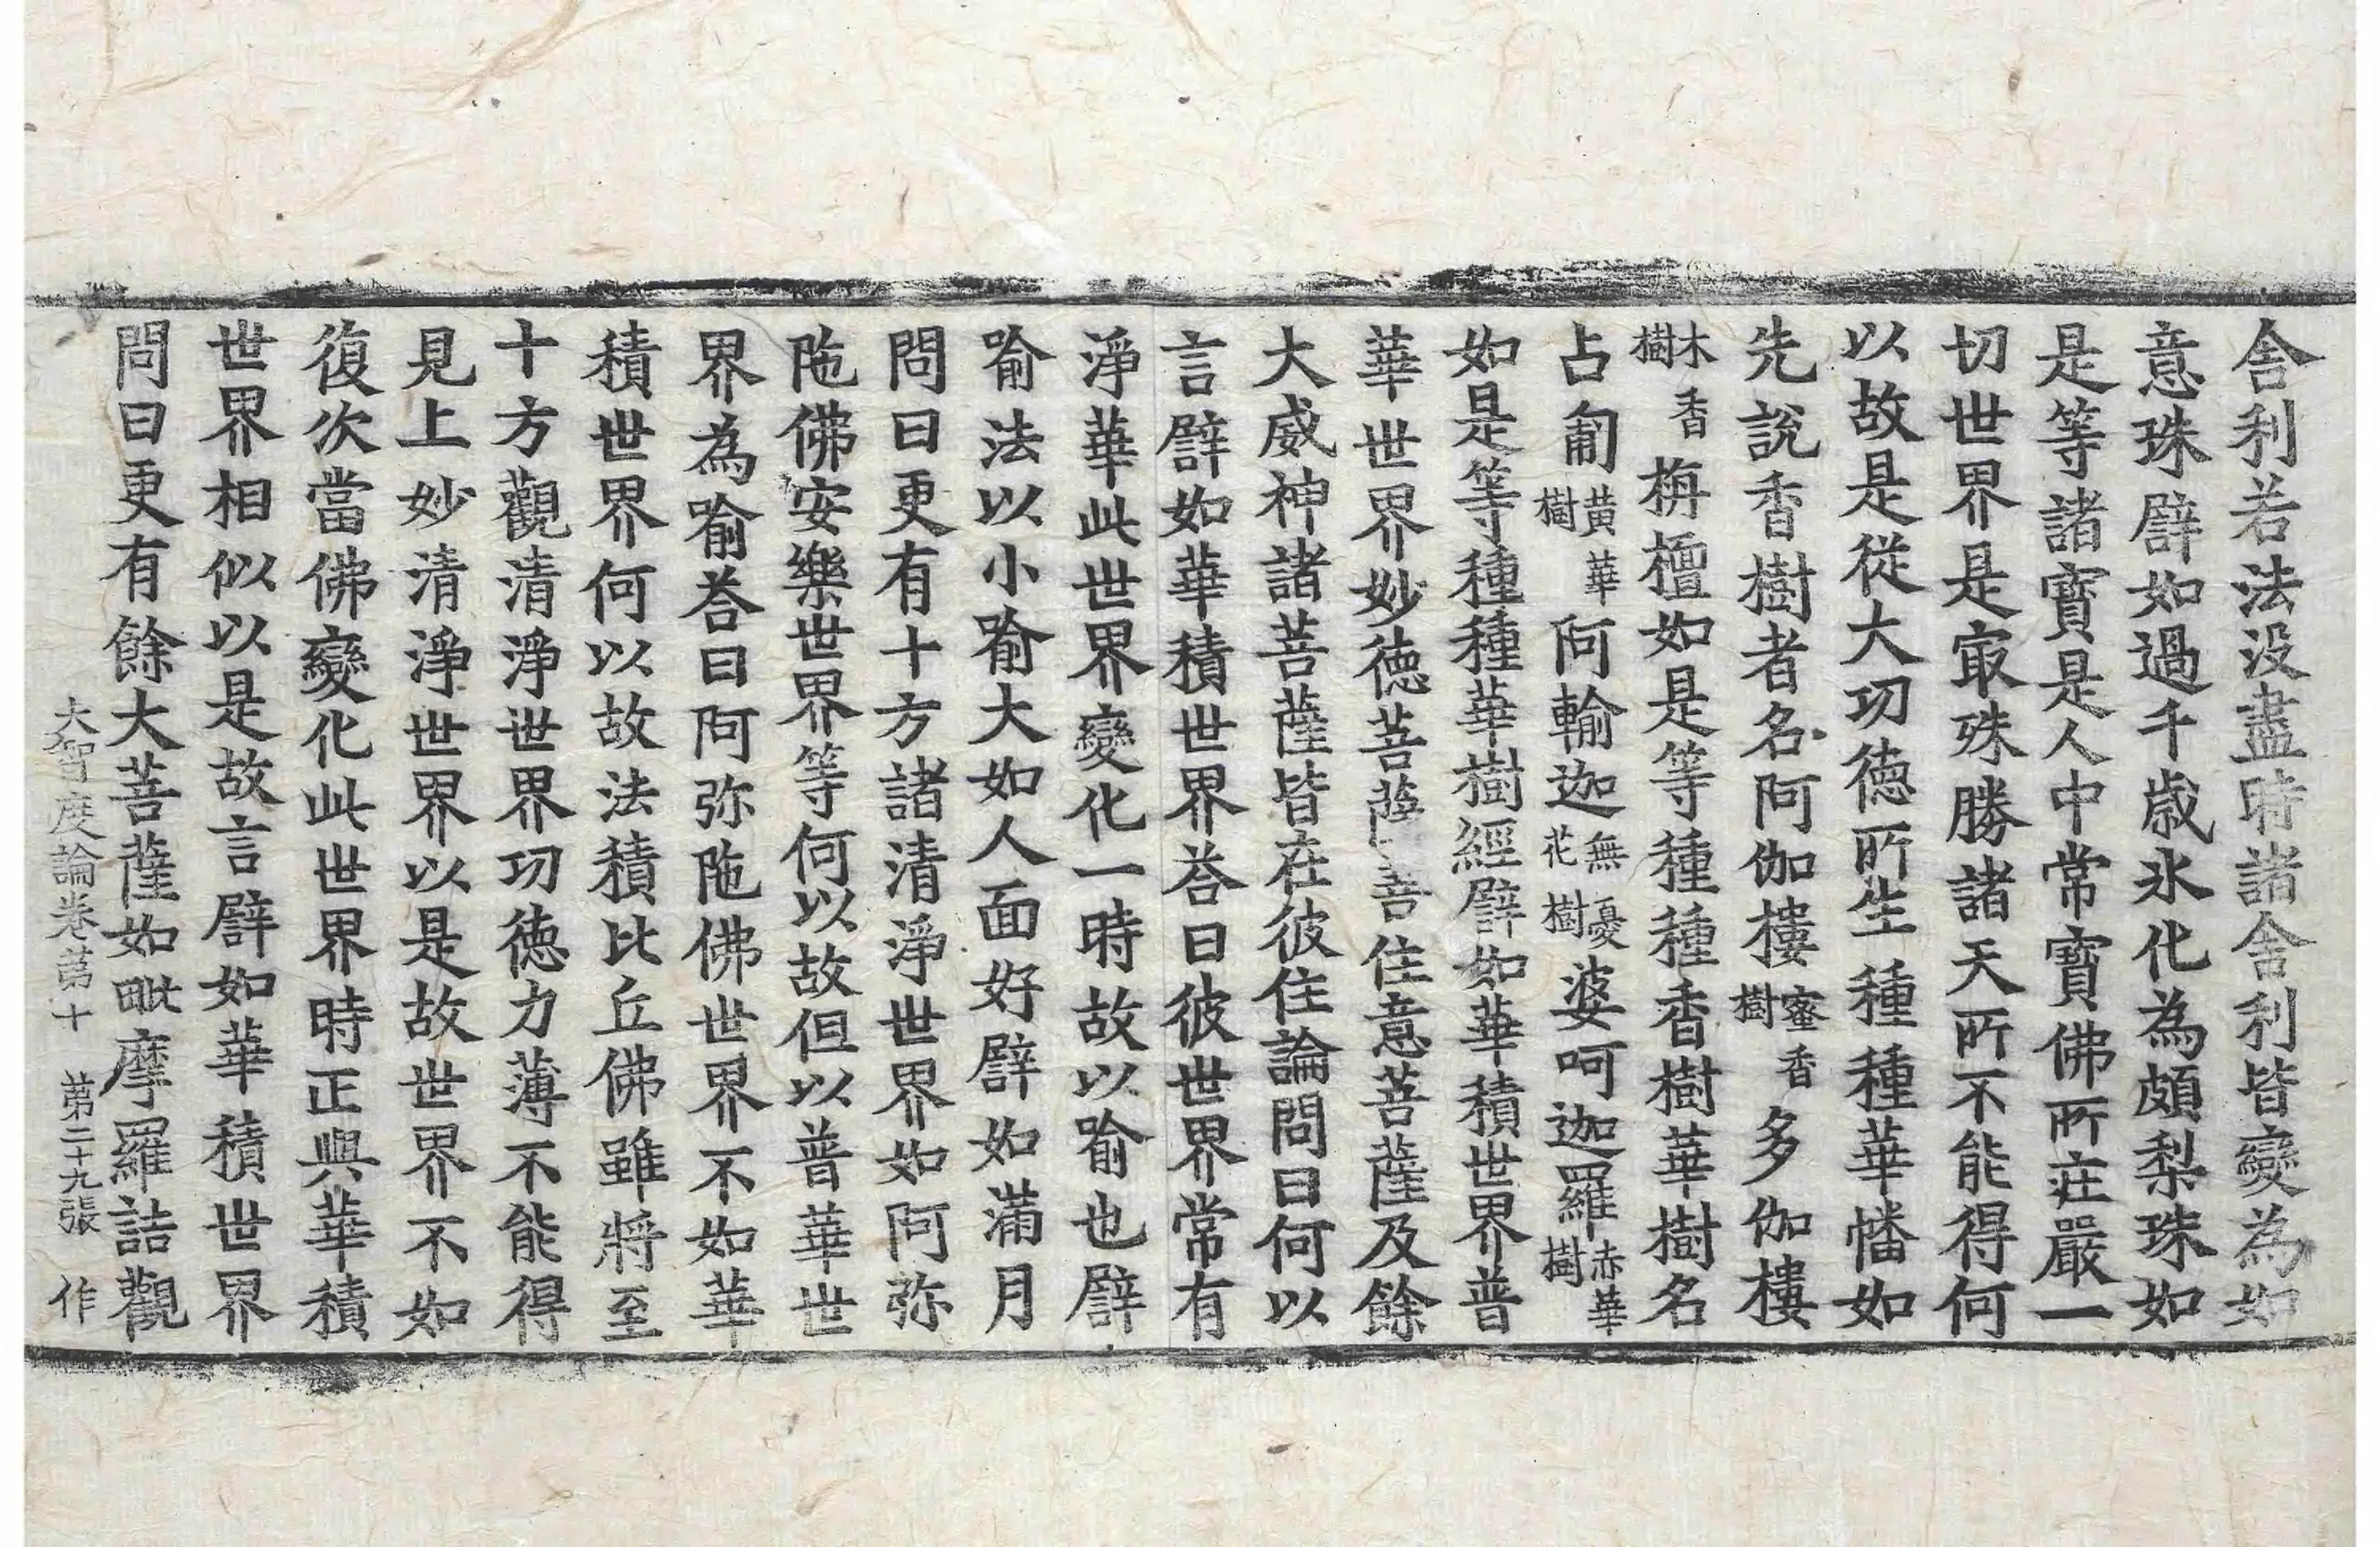 舎利若法没盡時諸舎利皆變為如
意珠辟如過千歳氷化為頗梨珠如
是等諸寶是人中常寶佛所莊嚴一
切世界是㝡殊勝諸天所不能得何
以故是從大功徳所生種種華幡如
先說香樹者名阿伽樓蜜香樹多伽樓
木香樹栴檀如是等種種香樹華樹名
占匍黄華樹阿輸迦無憂花樹婆呵迦羅赤華樹
如是等種種華樹經辟如華積世界普
華世界妙徳菩薩善住意菩薩及餘
大威神諸菩薩皆在彼住論問曰何以
言辟如華積世界荅曰彼世界常有
淨華此世界變化一時故以喻也辟
喻法以小喻大如人面好辟如滿月
問曰更有十方諸清淨世界如阿弥
陁佛安樂世界等何以故但以普華世
界為喻荅曰阿弥陁佛世界不如華
積世界何以故法積比丘佛雖將至
十方觀清淨世界功徳力薄不能得
見上妙清淨世界以是故世界不如
復次當佛變化此世界時正與華積
世界相似以是故言辟如華積世界
問曰更有餘大菩薩如毗摩羅詰觀
大智度論卷苐十 苐二十九張 作